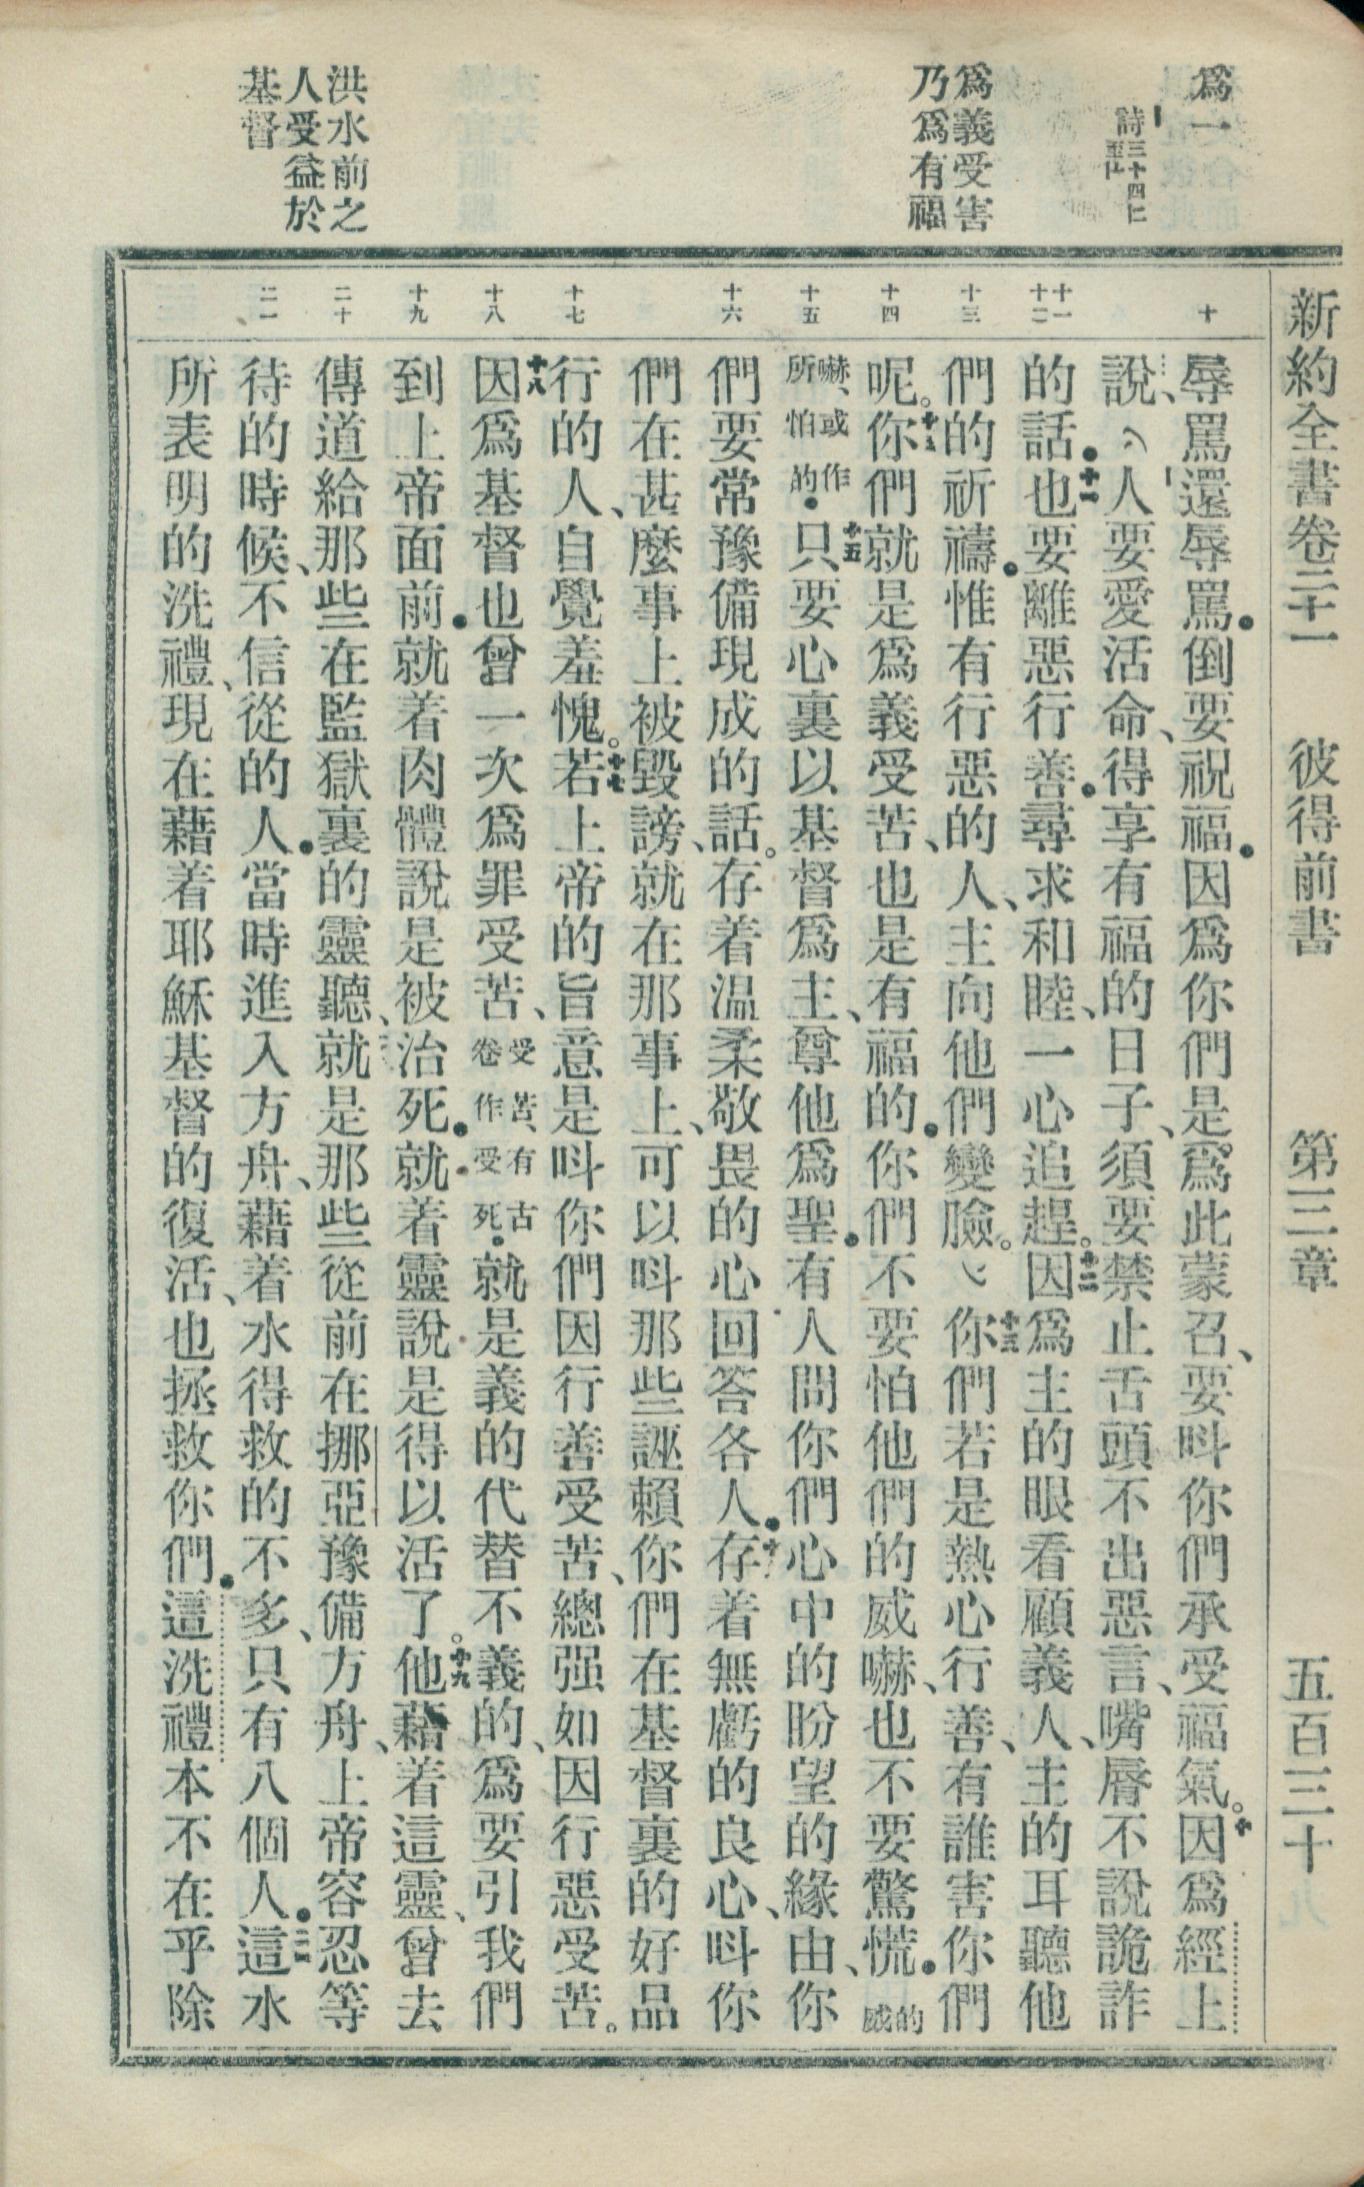 新約全書卷二十一　彼得前書　第三章　五百三十
爲一
詩三十四
爲義受害
乃爲有福
洪水前之
人受益於
基督
十
十一
十二
十三
十四
十五
十六
十七
十八
十九
二十
二一
辱罵還辱罵．倒要祝福．因爲你們是爲此蒙召、要呌你們承受福氣。十因爲經上
說、（人要愛活命、得享有福的日子、須要禁止舌頭不出惡言、嘴脣不說詭詐
的話．十一也要離惡行善．尋求和睦、一心追趕。十二因爲主的眼看顧義人、主的耳聽他
們的祈禱．惟有行惡的人、主向他們變臉。）十三你們若是熱心行善、有誰害你們
呢。十四你們就是爲義受苦、也是有福的．你們不要怕他們的威嚇、也不要驚慌．的威
嚇、或作所怕的．十五只要心裏以基督爲主、尊他爲聖．有人問你們心中的盼望的緣由、你
們要常豫備現成的話。存着温柔敬畏的心回答各人．十六存着無虧的良心、呌你
們在甚麼事上被毀謗、就在那事上、可以呌那些誣賴你們在基督裏的好品
行的人、自覺羞愧。十七若上帝的旨意是呌你們因行善受苦、總强如因行惡受苦。
十八因爲基督也曾一次爲罪受苦、受苦、有古卷作受死．就是義的代替不義的、爲要引我們
到上帝面前．就着肉體說是被治死．就着靈說是得以活了。十九他藉着這靈、曾去
傳道給那些在監獄裏的靈聽、就是那些從前在挪亞豫備方舟、上帝容忍等
待的時候、不信從的人．當時進入方舟、藉着水得救的不多、只有八個人．二一這水
所表明的洗禮、現在藉着耶穌基督的復活、也拯救你們．這洗禮本不在乎除